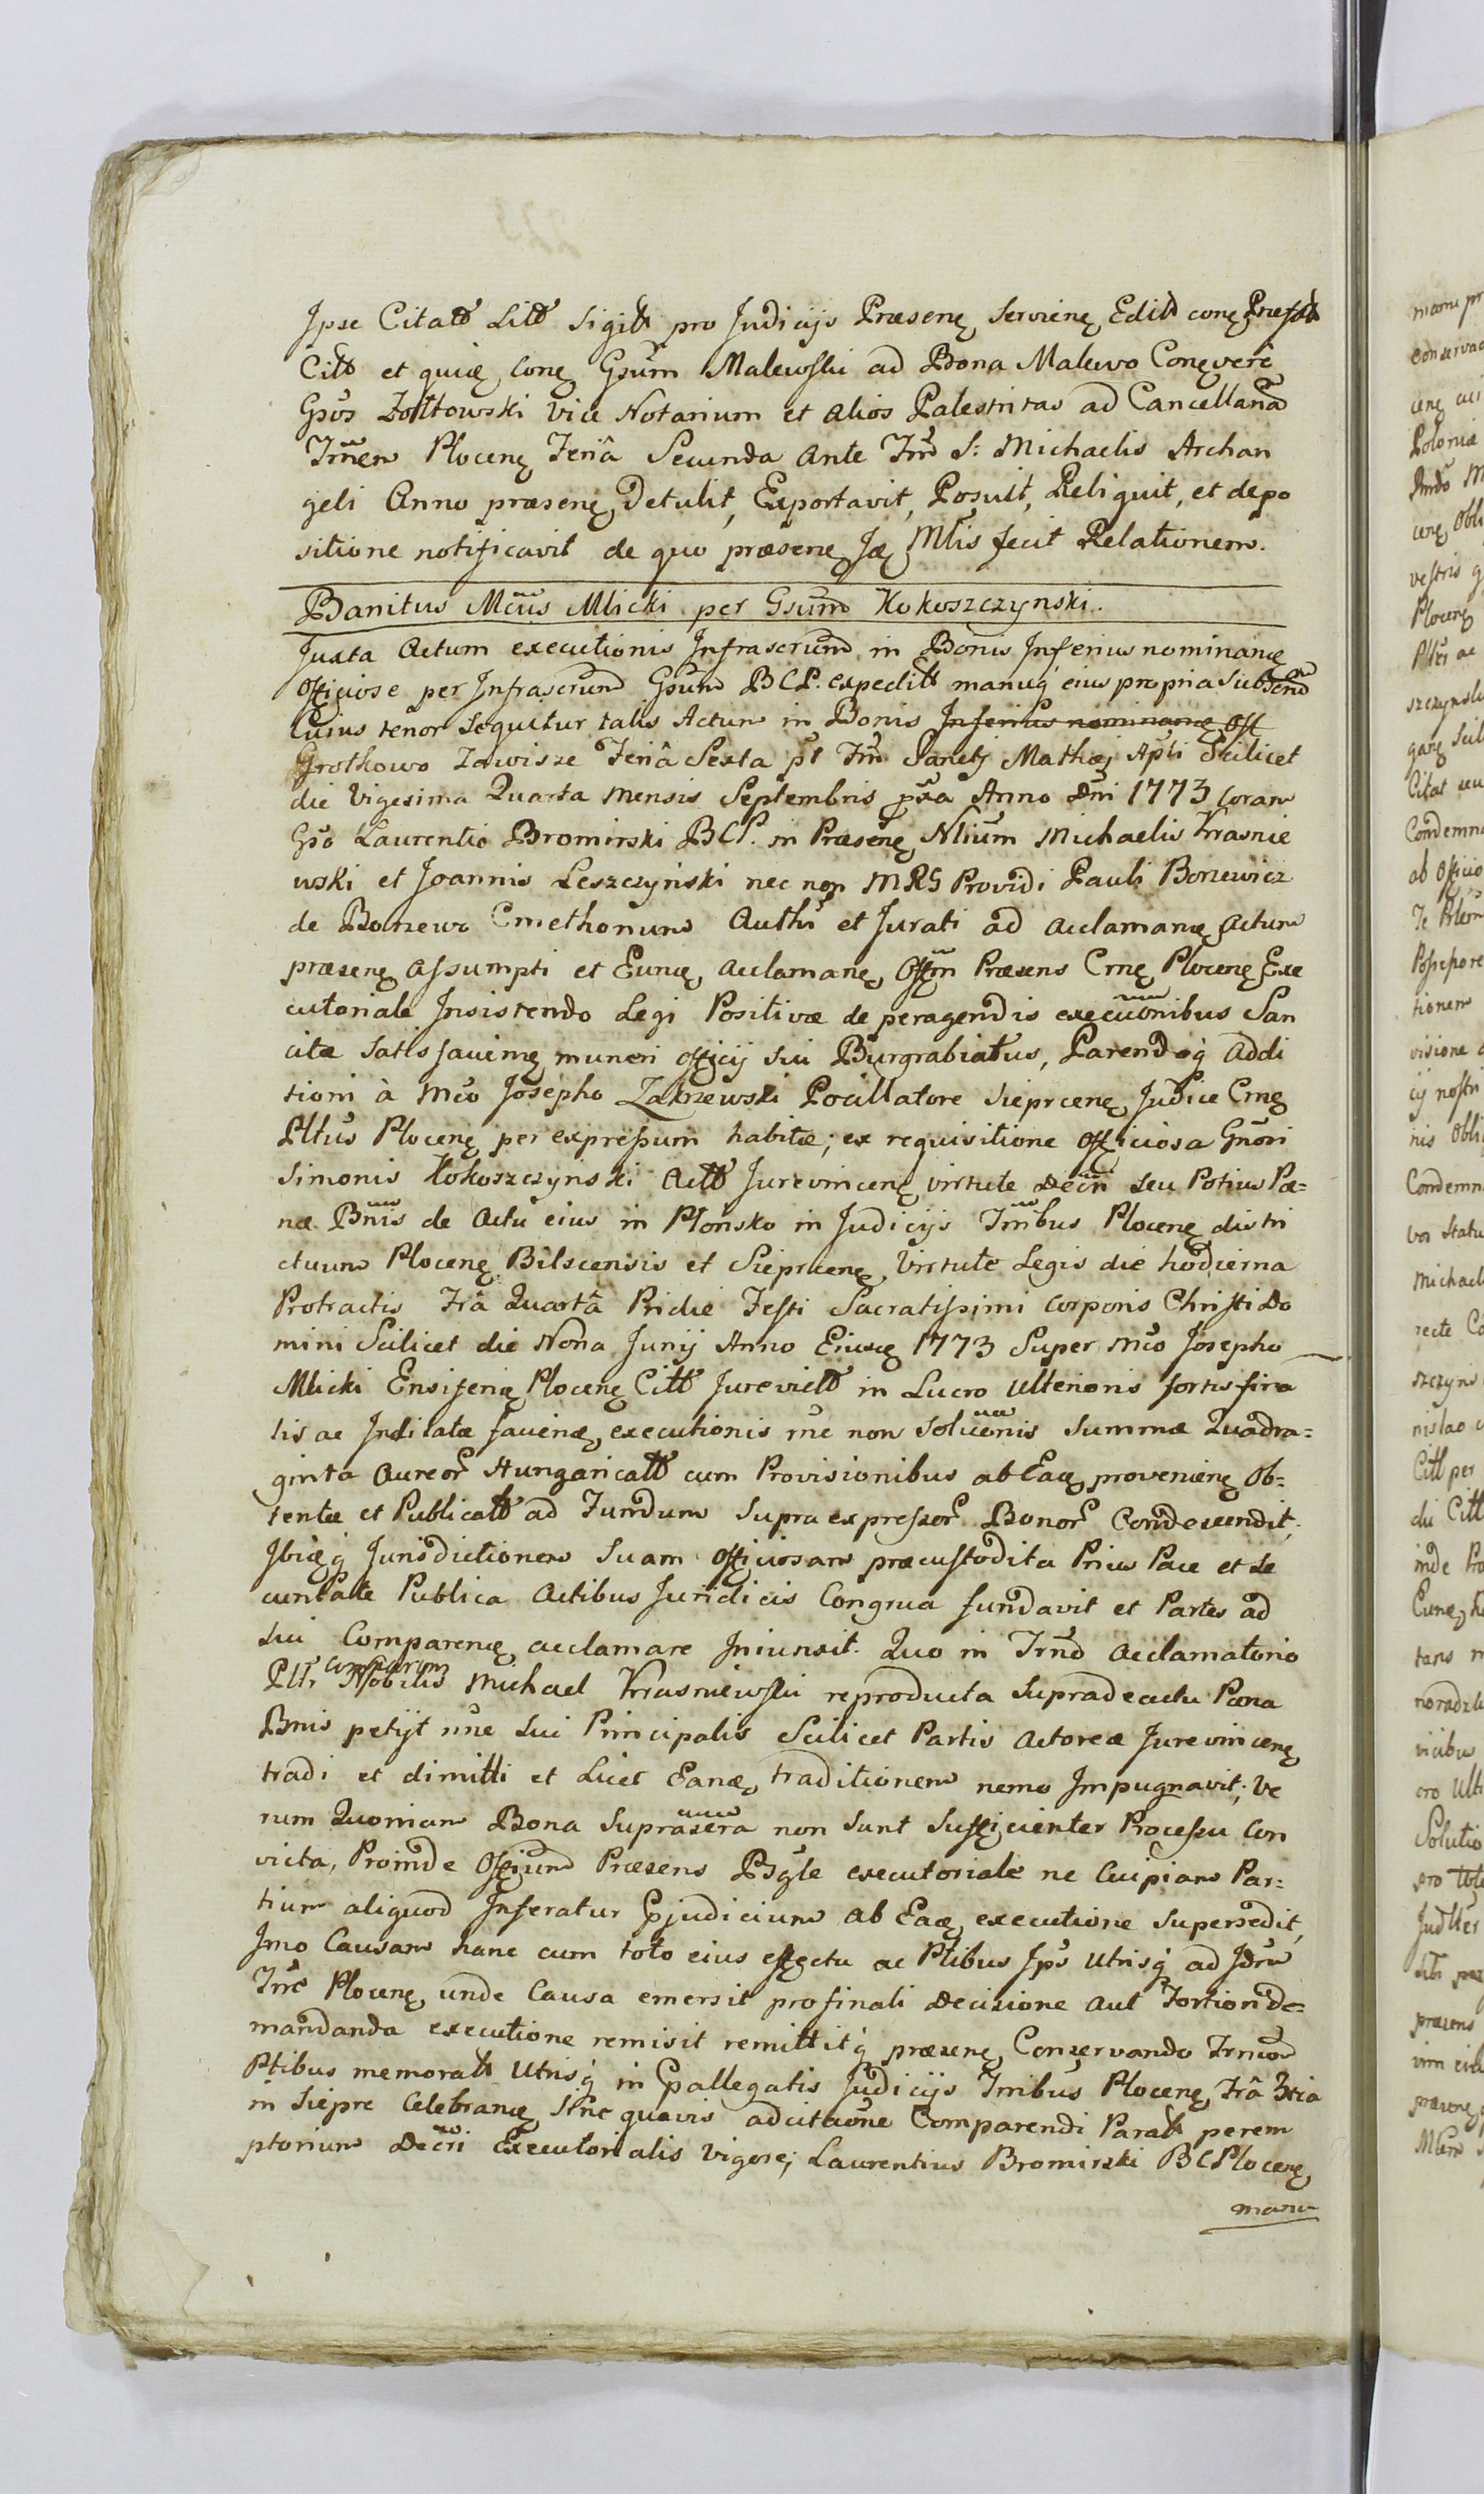 Ipse Citatt Litt Sigitt pro Judicijs Præsenę Servienę Editt conę Præfatt
Citt et quię Conę Gsum Malewski ad Bona Malewo Conę vere
Gsus Zołtowski Vice Notarium et alios Palestritas ad Cancellaria
Trnem Plocenę Feriâ Secunda Ante Fm S: Michaelis Archan
geli Anno præsenę Detulit, Exportavit, Posuit, Reliquit, et depo
sitione notificavit de quo præsenę Ję Mtis fecit Relationem.
Banitus Mcus Mlicki per Gsum Kokoszczynski.
Juxta Actum executionis Infrascrum in Bonis Inferius nominanę
Officiose per Infrascrum Gsum BCP. expeditt manuq eius propria Subscrid
Cuius tenor sequitur talis Actum in Bonis Inferius nominanę Off
Grotkowo Zawisze Feriâ Sexta pt Fm Sancti Mathæi Apti Scilicet
die Vigesima Quarta Mensis Septembris pxa Anno Dni 1773 coram
Gso Laurentio Bromirski BCP. in Præsenę Nlium Michaelis Krasnie
wski et Joannis Leszczyński nec non MRS Providi Pauli Borzewicz
de Borzewo Cmethonum Authi et Jurati ad acclamanę Actum
præsenę assumpti et Eunę acclamanę Offm Præsens Crnę Plocenę Exe
cutoriale Insistendo Legi Positivæ de peragendis execuonibus San
citæ Satisfacienę muneri officij sui Burgrabiatus, Parendoq addi
tioni à Mco Josepho Zakrzewski Pocillatore Sieprcenę Judice Crnę
Pltus Plocenę per expressum habitæ; ex requisitione officiosa Gnosi
Simonis Kokoszczynski Actt Jurevincenę virtute Decri seu Potius Pæ=
næ Bnis de Actu eius in Płońsko in Judicijs Trnibus Plocenę distri
ctuum Plocenę Bilscensis et Sieprcenę Virtute Legis die hodierna
Protractis Frâ Quartâ Pridie Festi Sacratissimi Corporis Christi Do
mini Scilicet die Nona Junij Anno Eiusę 1773 Super Mco Josepho
Mlicki Ensiferię Plocenę Citt Jurevictt in Lucro Ulterioris fortis fina
lis ac Inditatæ facienę executionis rne non Soluonis Summæ Quadra=
ginta Aureor Hungaricatt cum Provisionibus ab Eaę provenienę Ob=
tentæ et Publicatt ad Fundum Supra expressor Bonor Condescendit;
Ibięq Jurisdictionem Suam officiosam præcustodita Prius Pace et Se
curitate Publica Actibus Juridicis Congrua fundavit et Partes ad
sui Comparenę acclamare Iniunxit. Quo in Trno Acclamatorio
Pltr comparens Nobilis Michael Krasniewski reproducta Supradeactu Pœna
Bnis petijt nne sui Principalis Scilicet Partis Actoreæ Jurevincenę
tradi et dimitti et Licet Eanę traditionem nemo Impugnavit; Ve
rum Quoniam Bona Suprascra non Sunt Sufficienter Processu Con
victa, Proinde Offium Præsens Bsgle executoriale ne Cuipiam Par=
tium aliquod Inferatur Pjudicium ab Eaę executione Supersedit,
Imo Causam hanc cum toto eius effectu ac Ptibus Ips Utrisq ad Jdm
Trnc Plocenę unde Causa emersit pro finali Decisione aut Fortiori de=
mandanda executione remisit remittitq præsenę Conservando Trnum
Ptibus memoratt Utrisq in Pallegatis Judicijs Trnibus Plocenę Frâ 3tia
in Siepre Celebranę Sine quavis adcitaone Comparendi Paratt perem
ptorium Decri Executorialis Vigore; Laurentius Bromirski BCPlocenę
manu